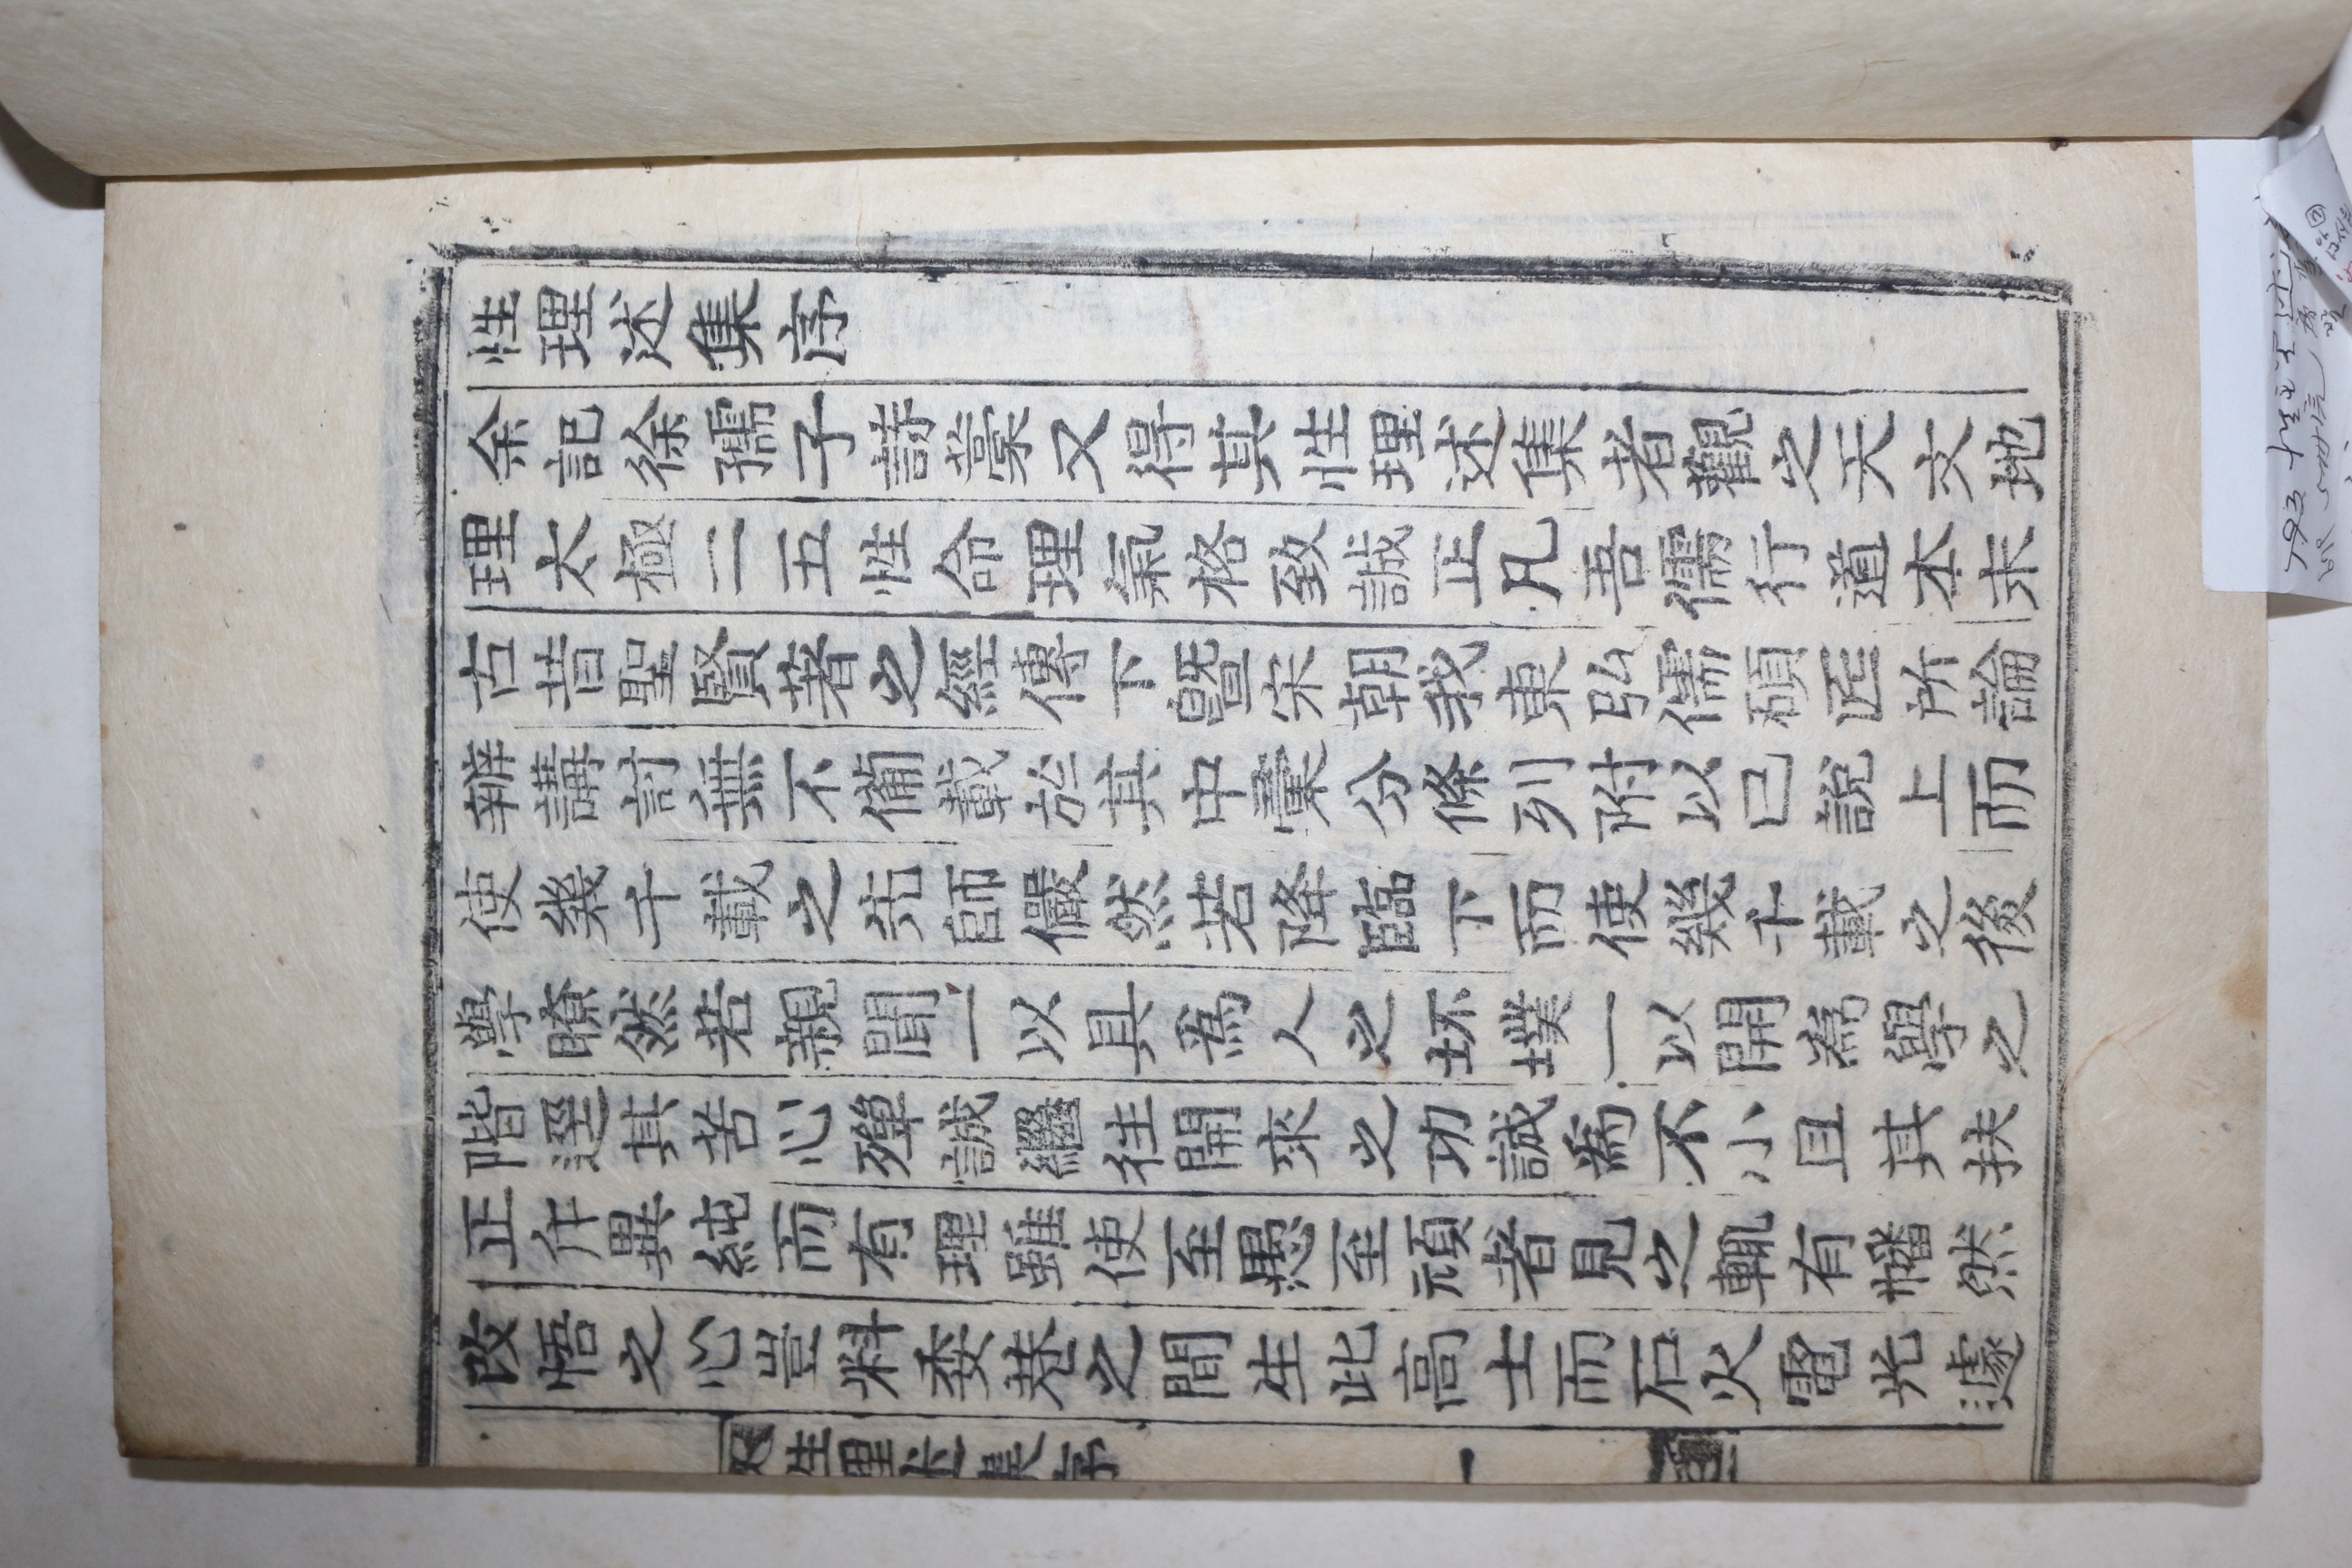 性理述集序
余記徐孺子詩藁又得其性理述集者觀之天文地
理太極二五性命理氣格致誠正凡吾儒行道本末
古昔聖賢著之經傳下曁宋朝我東弘儒碩匠所論
辨講討無不備載於其中彙分條列附以己說上而
使幾千載之先師儼然若降臨下而使幾千載之後
學瞭然若親聞一以具爲人之坯墣一以開爲學之
階逕其苦心殫誠繼往開來之功誠爲不小且其扶
正斥異純而有理雖使至愚至頑者見之輒有幡然
改悟之心豈料委巷之間生此高士而石火電光遽
性理述集序 一